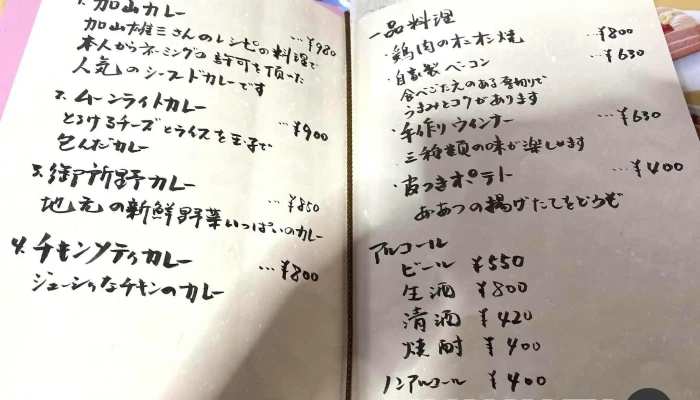 1. 加山カレー
…¥980
加山雄三さんのレシピの料理で
本人からネーミングの許可を頂いた
人気のシーフードカレーです
2. ムーンライトカレー
…¥900
とろけるチーズとライスを玉子で
包んだカレー
3. 御所野カレー
…¥850
地元の新鮮野菜いっぱいのカレー
4. チキンメティカレー
…¥800
ジューシィなチキンのカレー
一品料理
・鶏肉のオニオン焼 …¥800
・自家製ベーコン …¥630
食べごたえのある厚切りで
うまみとコクがあります
・手作りウィンナー …¥630
三種類の味が楽しめます
・皮つきポテト …¥400
あつあつの揚げたてをどうぞ
アルコール
ビール ¥550
生酒 ¥800
清酒 ¥420
焼酎 ¥400
ノンアルコール ¥400